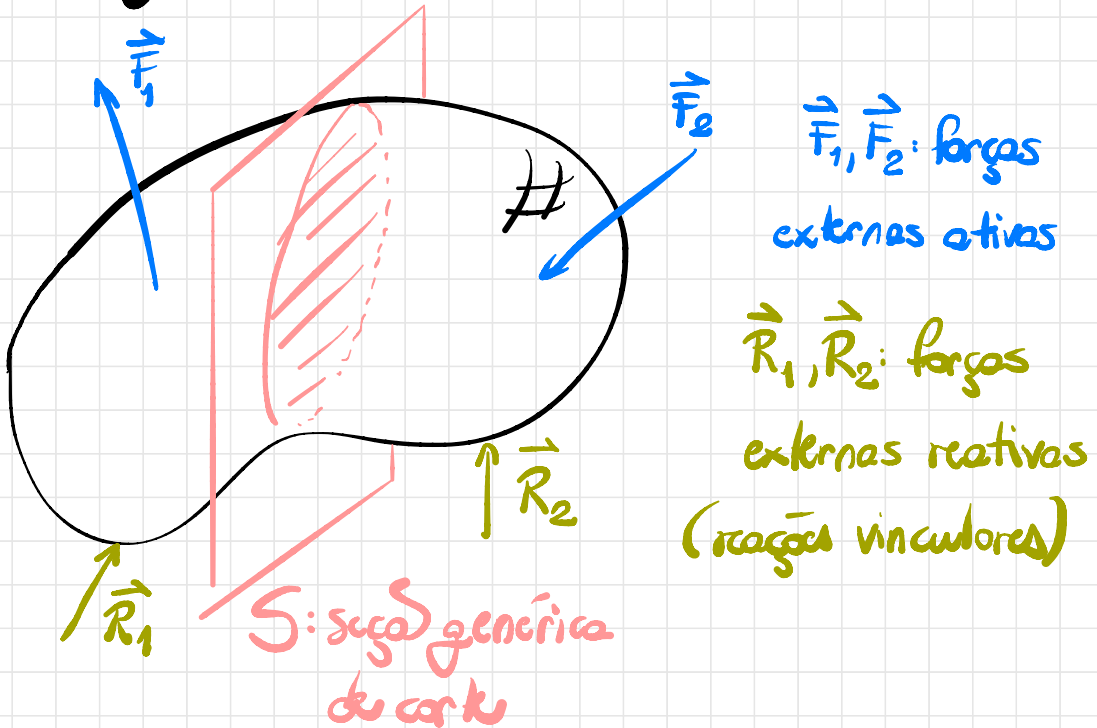 F₁
F₂
F₁, F₂: forças
externas ativas
#
R₁, R₂: forças
externas reativas
(reações vinculares)
R₂
R₁
S: seção genérica
de corte